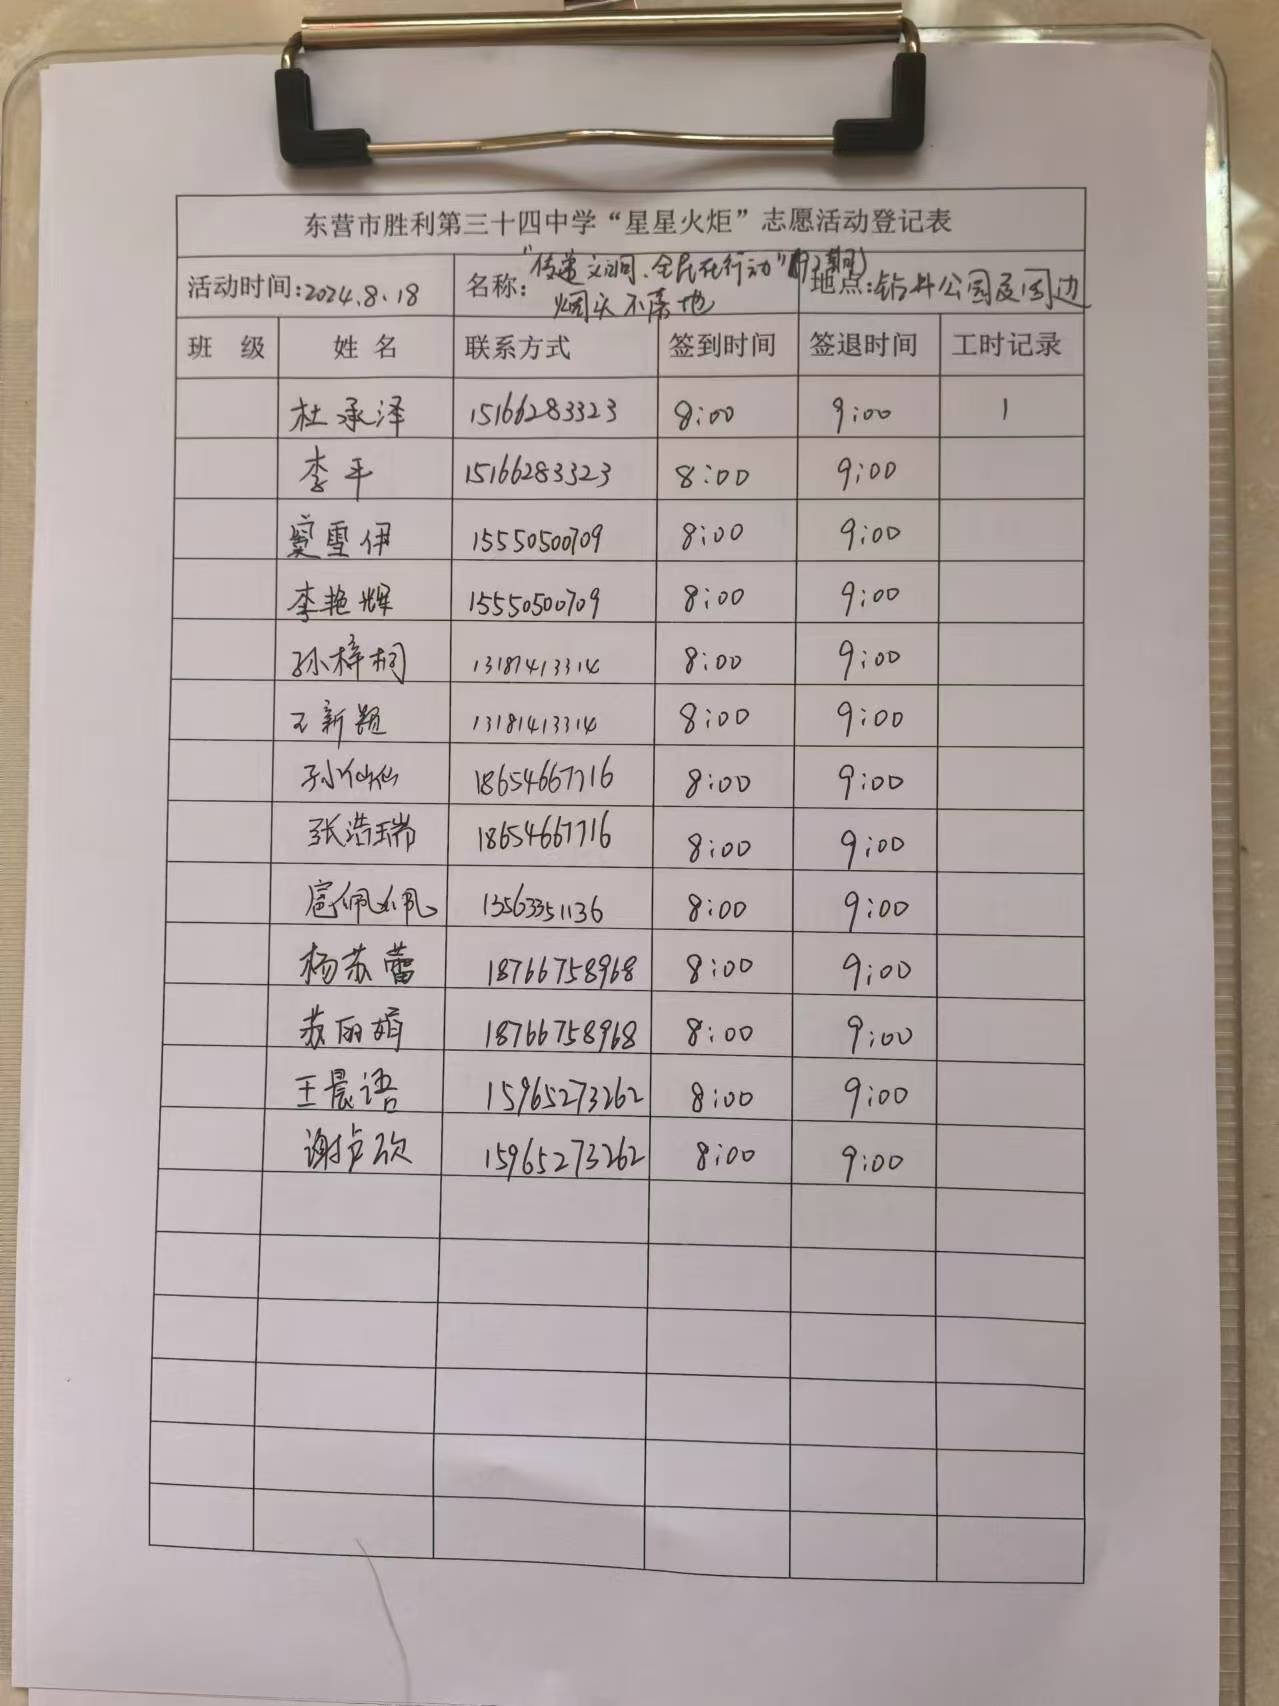 东营市胜利第三十四中学“星星火炬”志愿活动登记表
活动时间:2024.8.18 名称: “传递文明、全民在行动” 烟头不落地 地点:钻井公园及周边
班 级 姓 名 联系方式 签到时间 签退时间 工时记录
杜承泽 15166283323 8:00 9:00 1
李平 15166283323 8:00 9:00
窦雪伊 15550500709 8:00 9:00
李艳辉 15550500709 8:00 9:00
孙梓桐 13181413314 8:00 9:00
王新颖 13181413314 8:00 9:00
孙仙仙 18654667716 8:00 9:00
张浩瑞 18654667716 8:00 9:00
扈佩佩 13563351136 8:00 9:00
杨苏蕾 18766758968 8:00 9:00
苏丽娟 18766758968 8:00 9:00
王晨语 15965273262 8:00 9:00
谢 欣 15965273262 8:00 9:00